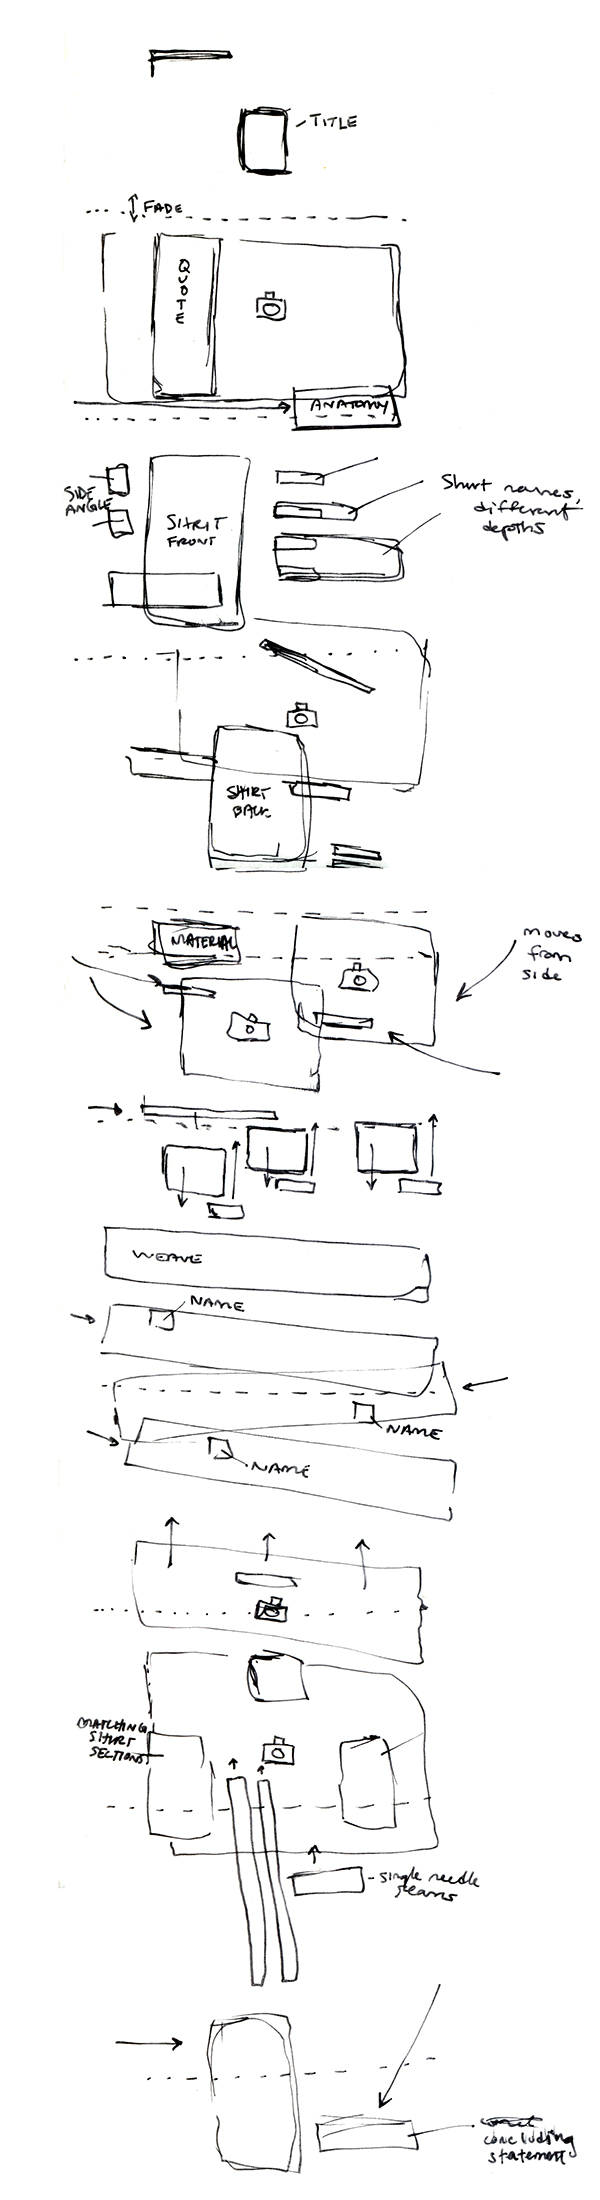 TITLE
FADE
QUOTE
ANATOMY
SIDE
ANGLE
SHRIT
FRONT
Shirt names,
different
depths
SHIRT
BACK
MATERIAL
moves
from
side
WEAVE
NAME
NAME
NAME
MATCHING
SHIRT
SECTIONS
single needle
seams
concluding
statement